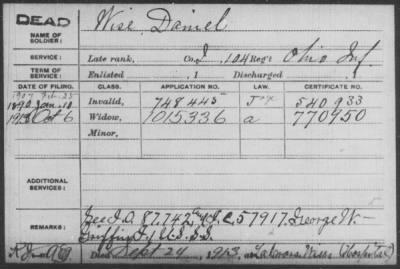 DEAD
NAME OF SOLDIER: Wise Daniel
SERVICE: Late rank, Co. I, 104 Reg't Ohio Inf.
TERM OF SERVICE: Enlisted , 1 Discharged , 1
DATE OF FILING. CLASS. APPLICATION NO. LAW. CERTIFICATE NO.
1890 Jan. 10 Invalid, 748445 540933
1913 Oct 6 Widow, 1015336 a 770450
Minor,
ADDITIONAL SERVICES:
REMARKS: See I.O. 87.742, C. 57917. George W.
Griffin
Died Sept 24, 1913, at Hospital